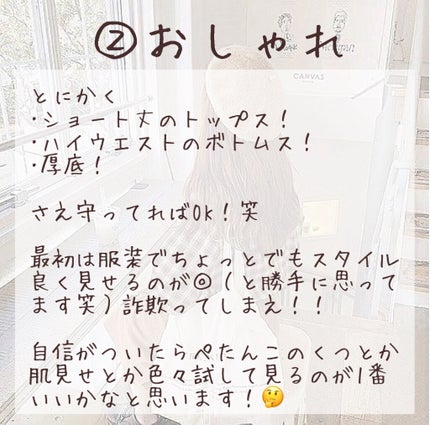 ②おしゃれ
CANVAS
とにかく
・ショート丈のトップス！
・ハイウエストのボトムス！
・厚底！
さえ守ってればOK！笑
最初は服装でちょっとでもスタイル
良く見せるのが◎（と勝手に思って
ます笑）詐欺ってしまえ！！
自信がついたらぺたんこのくつとか
肌見せとか色々試して見るのが1番
いいかなと思います！🤔